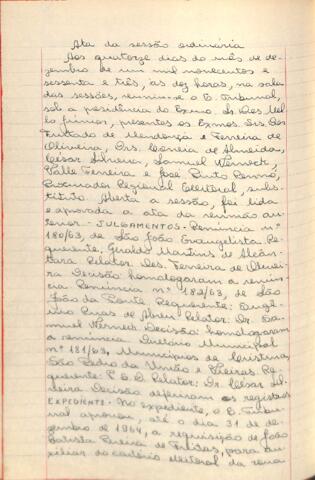 Ata da sessão ordinária
Aos quatorze dias do mês de de-
zembro de um mil novecentos e
sessenta e três, às dez horas, na sala
das sessões, reuniu-se o E. Tribunal,
sob a presidência do Exmo. Sr. Des. Mel-
lo Júnior, presentes os Exmos. Srs. Des.
Furtado de Mendonça e Ferreira de
Oliveira, Drs. Correia de Almeida,
César Silveira, Samuel Werneck,
Valle Ferreira e José Pinto Renó,
Procurador Regional Eleitoral, subs-
tituto. Aberta a sessão, foi lida
e aprovada a ata da reunião an-
terior - JULGAMENTOS - Renúncia nº
180/63, de São João Evangelista. Re-
querente, Geraldo Martins de Alcân-
tara. Relator: Des. Ferreira de Olivei-
ra. Decisão: homologaram a renún-
cia. Renúncia nº 182/63, de São
João da Ponte. Requerente: Eugê-
nio Ruas de Abreu. Relator: Dr. Sa-
muel Werneck. Decisão: homologaram
a renúncia. Diretório Municipal
nº 181/63, Municípios de Cristina,
São Pedro da União e Vieiras. Re-
querente: P. S. D. Relator: Dr. César Sil-
veira. Decisão: deferiram os registros.
EXPEDIENTE - No expediente, o E. Tribu-
nal aprovou, até o dia 31 de de-
zembro de 1964, a requisição de João
Batista Pereira de Freitas, para au-
xiliar do cartório eleitoral da zona